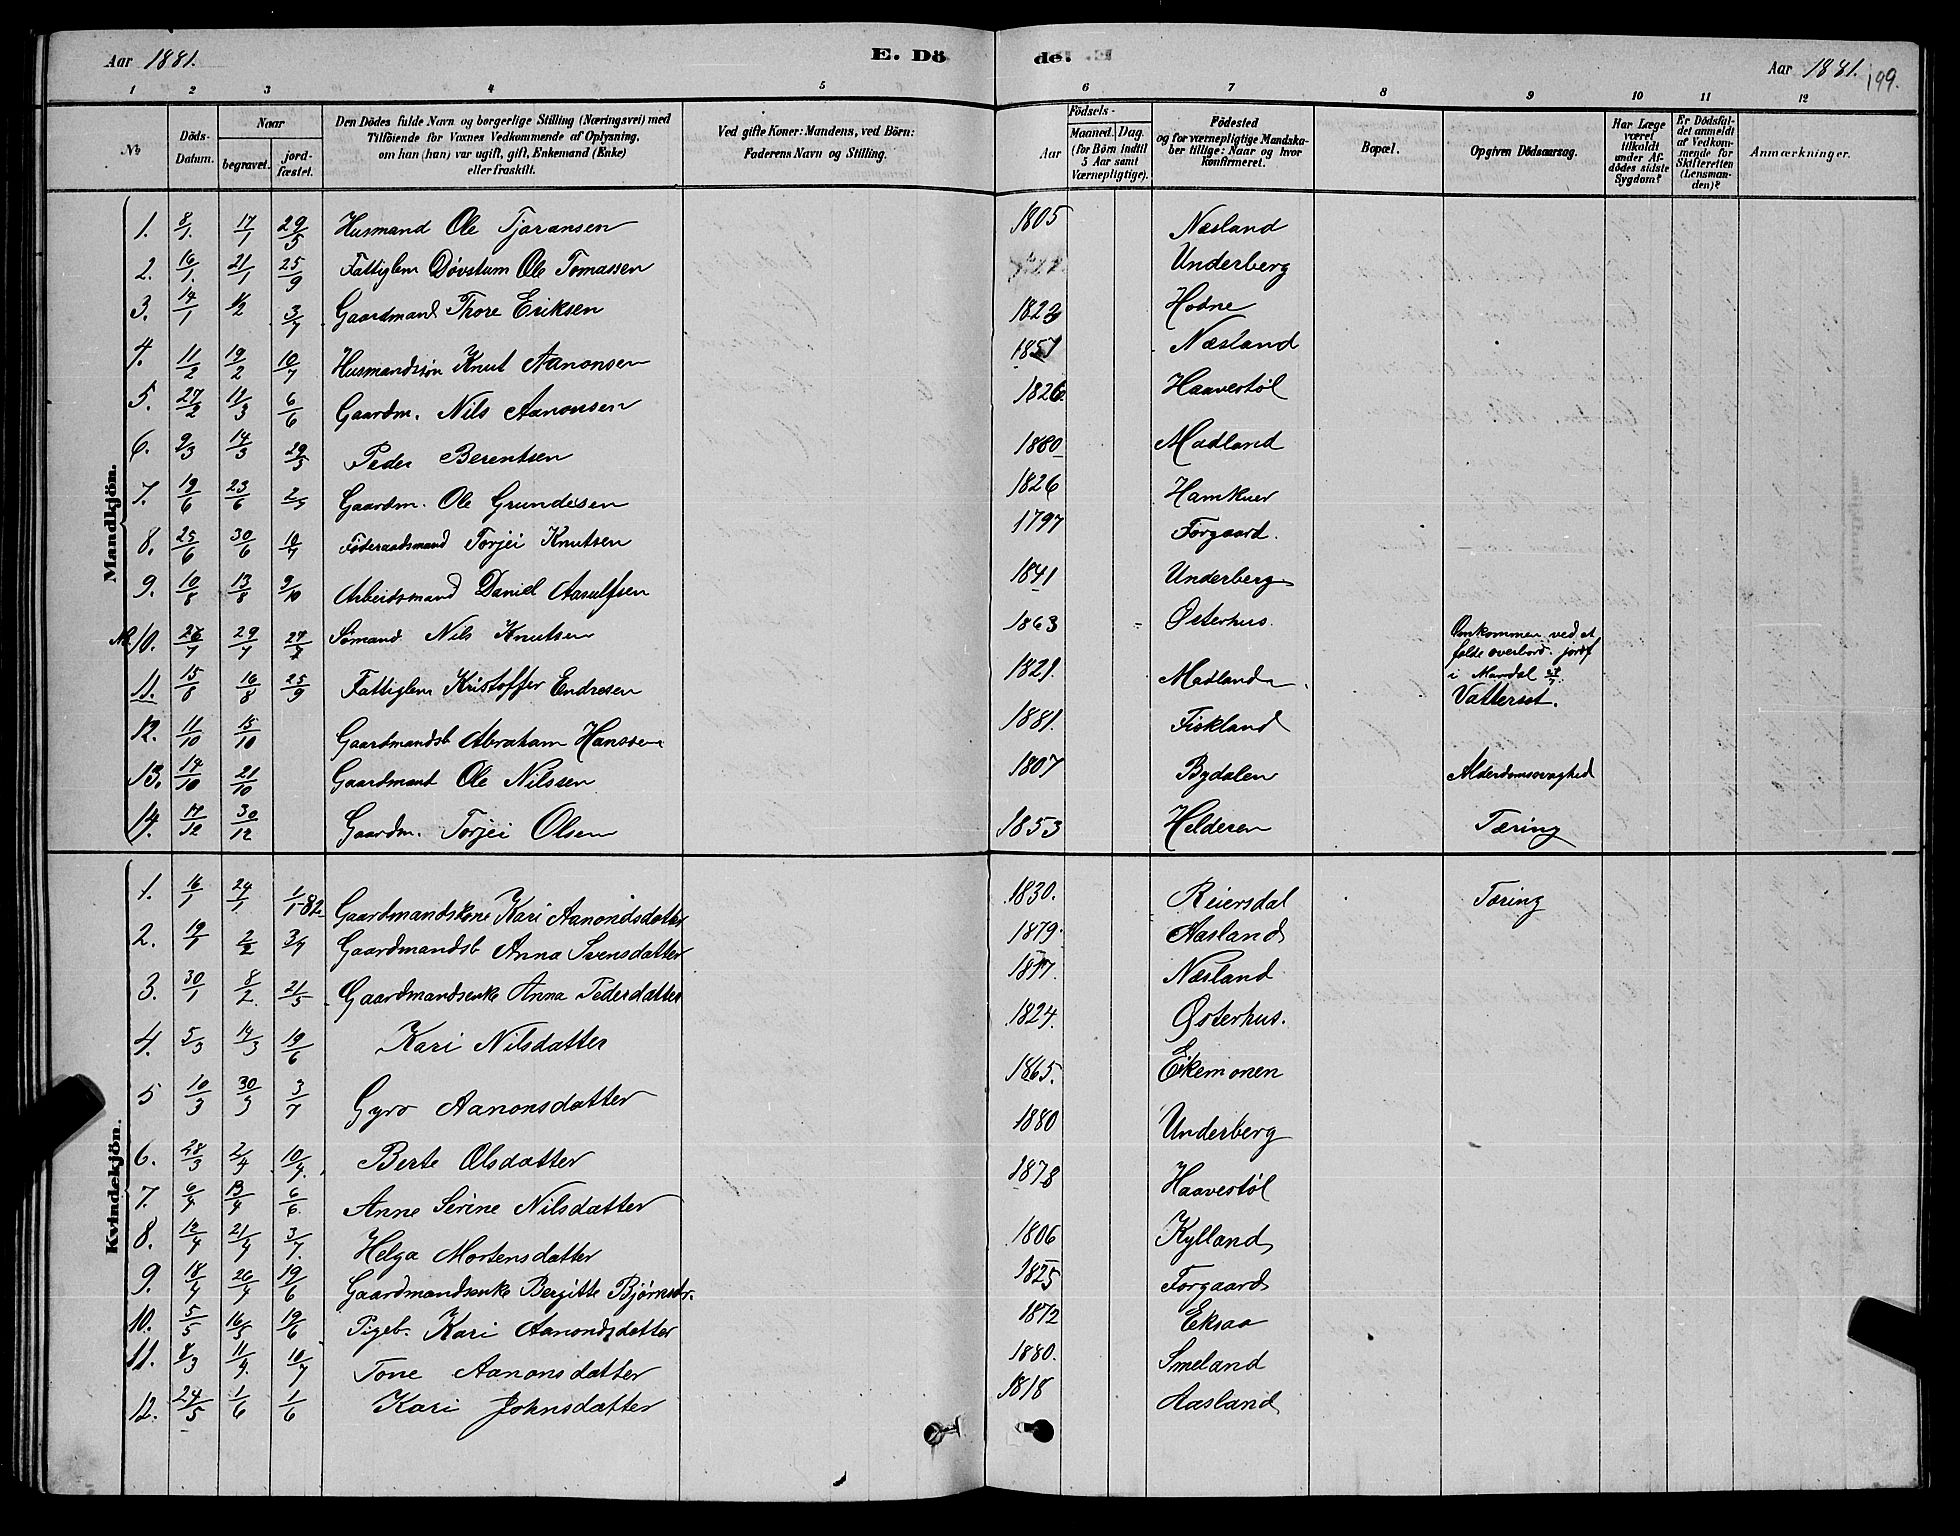 Aar 1881. E. Dö de. Aar 1881. 199.
1 2 3 4 5 6 7 8 9 10 11 12
No Döds-Datum. Naar begravet. jord-fæstet. Den Dödes fulde Navn og borgerlige Stilling (Næringsvei) med Tilföiende for Voxnes Vedkommende af Oplysning, om han (hun) var ugift, gift, Enkemand (Enke) eller fraskilt. Ved gifte Koner: Mandens, ved Börn: Faderens Navn og Stilling. Födsels- Aar Maaned. Dag. (for Börn indtil 5 Aar samt Værnepligtige). Födested og for værnepligtige Mandskaber tillige: Naar og hvor konfirmeret. Bopæl. Opgiven Dödsaarsag. Har Læge været tilkaldt under Afdödes sidste Sygdom? Er Dödsfaldet anmeldt af Vedkommende for Skifteretten (Lensmanden)? Anmærkninger.
Mandkjön.
1. 8/1. 17/1 29/5 Husmand Ole Tjøransen 1805 Næsland
2. 16/1. 21/1 25/9 Fattiglem Døvstum Ole Tomassen Underberg
3. 14/1 1/2 3/7 Gaardmand Thore Eriksen 1823 Hodne
4. 11/2 19/2 10/7 Husmandssøn Knut Aanonsen 1851 Næsland
5. 27/2 11/3 6/6 Gaardm. Nils Aanonsen 1826 Haavestøl
6. 9/3 14/3 29/5 Peder Berentsen 1880 Madland
7. 19/6 23/6 Gaardm. Ole Grundesen 1826 Hamkner
8. 25/6 30/6 10/7 Föderaadsmand Torjei Knutsen 1797 Forgaard.
9. 10/8 13/8 9/10 Arbeidsmand Daniel Aasulfsen 1841 Underberg
10. 26/7 29/7 27/7 Sömand Nils Knutsen 1863 Østerhus. Omkommen ved at falde overbord. jordf i Mandal
11. 15/8 16/8 25/9 Fattiglem Kristoffer Endresen 1821. Madland Vattersot.
12. 11/10 15/10 Gaardmandsb Abraham Hanssen 1881. Fiskland
13. 14/10 21/10 Gaardmand Ole Nilssen 1807 Bydalen Alderdomssvaghed
14. 17/12 30/12 Gaardm. Torjei Olsen 1853 Helderen Tæring
Kvindekjön.
1. 16/1 24/1. 1/1-82. Gaardmandskone Kari Aanondsdatter 1830. Reiersdal Tæring
2. 19/1 2/2 3/7 Gaardmandsb Anna Svensdatter 1879. Aasland
3. 30/1 8/2. 21/5 Gaardmandsenke Anna Pedersdatter 1817. Næsland
4. 5/3 14/3 19/6 Kari Nilsdatter 1824. Østerhus.
5 10/3 30/3 3/7 Gyro Aanonsdatter 1865. Eikemonen
6. 28/3 2/4 10/4. Berte Olsdatter 1880 Underberg
7. 6/4 13/4 6/6. Anne Serine Nilsdatter 1878 Haavestøl
8. 12/4 21/4 3/7. Helga Mortensdatter 1806 Kylland
9. 18/4 26/4 19/6 Gaardmandsenke Bergitte Bjørnsdr. 1825 Forgaard
10. 5/5 16/5 19/6 Pigeb. Kari Aanondsdatter 1872 Eksaa
11. 8/3 11/4. 10/7 Tone Aanonsdatter 1880. Smeland
12. 24/5 1/6 1/6 Kari Johnsdatter 1818 Aasland